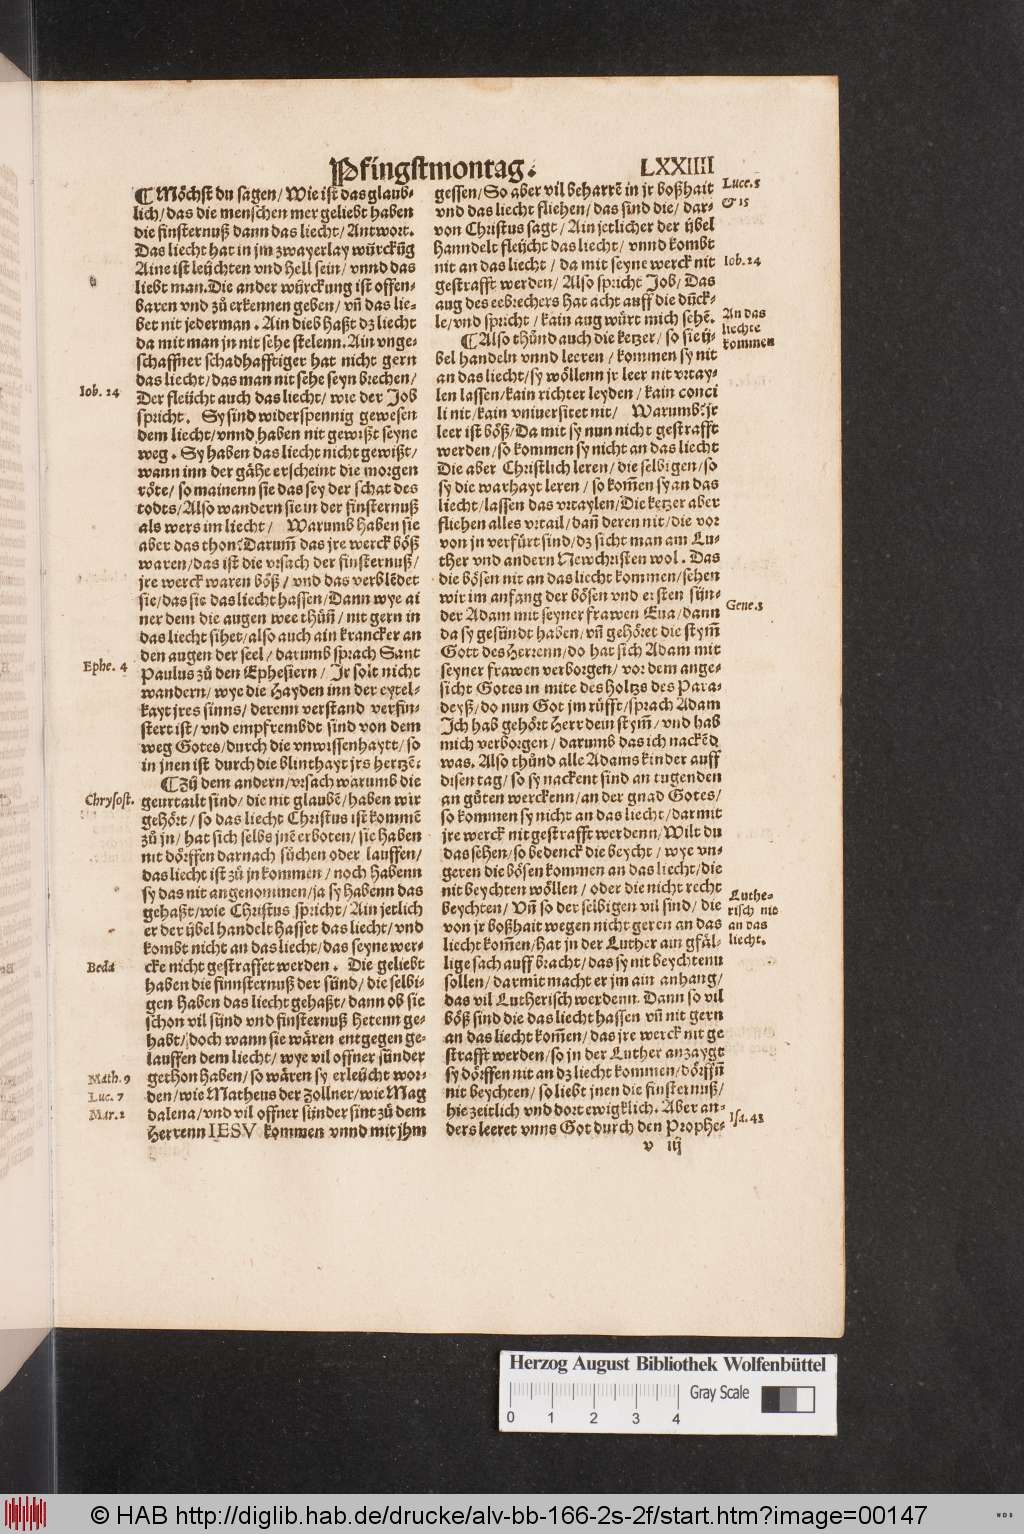 Pfingstmontag. LXXIIII
¶ Möchst du sagen/Wie ist das glaub-
lich/das die menschen mer geliebt haben
die finsternuß dann das liecht/Antwort.
Das liecht hat in jm zwayerlay würckūg
Aine ist leüchten vnd hell sein/vnnd das
liebt man. Die ander würckung ist offen-
baren vnd zů erkennen geben/vñ das lie-
bet nit jederman. Ain dieb haßt dz liecht
da mit man jn nit sehe stelenn. Ain vnge-
schaffner schadhafftiger hat nicht gern
das liecht/das man nit sehe seyn brechen/
Der fleücht auch das liecht/wie der Job
spricht. Sy sind widerspennig gewesen
dem liecht/vnnd haben nit gewißt seyne
weg. Sy haben das liecht nicht gewißt/
wann inn der gåhe erscheint die morgen
röte/so mainenn sie das sey der schat des
todts/Also wandern sie in der finsternuß
als wers im liecht/ Warumb haben sie
aber das thon? Darum̃ das jre werck böß
waren/das ist die vrsach der finsternuß/
jre werck waren böß/vnd das verblēdet
sie/das sie das liecht hassen/Dann wye ai
ner dem die augen wee thůn̄/nit gern in
das liecht sihet/also auch ain krancker an
den augen der seel/darumb sprach Sant
Paulus zů den Ephesiern/Jr solt nicht
wandern/wye die Hayden inn der eytel-
kayt jres sinns/derenn verstand verfin-
stert ist/vnd empfrembdt sind von dem
weg Gotes/durch die vnwissenhaytt/so
in jnen ist durch die blinthayt jrs hertzē.
¶ Zů dem andern/vrsach warumb die
geurtailt sind/die nit glaubē/haben wir
gehört/so das liecht Christus ist kommē
zů jn/hat sich selbs jnē erboten/sie haben
nit dörffen darnach sůchen oder lauffen/
das liecht ist zů jn kommen/noch habenn
sy das nit angenommen/ja sy habenn das
gehaßt/wie Christus spricht/Ain jetlich
er der übel handelt hasset das liecht/vnd
kombt nicht an das liecht/das seyne wer-
cke nicht gestraffet werden. Die geliebt
haben die finnsternuß der sünd/die selbi-
gen haben das liecht gehaßt/dann ob sie
schon vil sünd vnd finsternuß hetenn ge-
habt/doch wann sie wåren entgegen ge-
lauffen dem liecht/wye vil offner sünder
gethon haben/so wåren sy erleücht wor-
den/wie Matheus der Zollner/wie Mag
dalena/vnd vil offner sünder sint zů dem
Herrenn IESV kommen vnnd mit jhm
Iob. 24
Ephe. 4
Chrysost.
Beda
Math. 9
Luc. 7
Mar. 2
gessen/So aber vil beharrē in jr boßhait
vnd das liecht fliehen/das sind die/dar-
von Christus sagt/Ain jetlicher der übel
Hanndelt fleücht das liecht/vnnd kombt
nit an das liecht/da mit seyne werck nit
gestrafft werden/Also spricht Job/Das
aug des eebrechers hat acht auff die dūck-
le/vnd spricht/kain aug würt mich sehē.
¶ Also thůnd auch die ketzer/so sie ü-
bel handeln vnnd leeren/kommen sy nit
an das liecht/sy wöllenn jr leer nit vrtay-
len lassen/kain richter leyden/kain conci
li nit/kain vniuersitet nit/ Warumb? jr
leer ist böß/Da mit sy nun nicht gestrafft
werden/so kommen sy nicht an das liecht
Die aber Christlich leren/die selbigen/so
sy die warhayt leren/so kom̃en sy an das
liecht/lassen das vrtaylen/Die ketzer aber
fliehen alles vrtail/dañ deren nit/die vor
von jn verfürt sind/dz sicht man am Lu-
ther vnd andern Newchristen wol. Das
die bösen nit an das liecht kommen/sehen
wir im anfang der bösen vnd ersten sün-
der Adam mit seyner frawen Eua/dann
da sy gesündt haben/vñ gehöret die stym̃
Gott des Herrenn/do hat sich Adam mit
seyner frawen verborgen/vor dem ange-
sicht Gotes in mite des Holtzs des Para-
deyß/do nun Got jm rüfft/sprach Adam
Ich hab gehört Herr dein stym̃/vnd hab
mich verborgen/darumb das ich nackēd
was. Also thůnd alle Adams kinder auff
disen tag/so sy nackent sind an tugenden
an gůten werckenn/an der gnad Gotes/
so kommen sy nicht an das liecht/dar mit
jre werck nit gestrafft werdenn/Wilt du
das sehen/so bedenck die beycht/wye vn-
geren die bösen kommen an das liecht/die
nit beychten wöllen/oder die nicht recht
beychten/Vñ so der selbigen vil sind/die
von jr boßhait wegen nicht geren an das
liecht kom̃en/hat jn der Luther ain gfäl-
lige sach auff bracht/das sy nit beychtenn
sollen/darmit macht er jm ain anhang/
das vil Lutherisch werdenn. Dann so vil
böß sind die das liecht hassen vñ nit gern
an das liecht kom̃en/das jre werck nit ge
strafft werden/so jn der Luther anzaygt
sy dörffen nit an dz liecht kommen/dörffñ
nit beychten/so liebt jnen die finsternuß/
hie zeitlich vnd dort ewigklich. Aber an-
ders leeret vnns Got durch den Prophe-
v iij
Luce. 5
& 15
Iob. 24
An das
liechte
kommen
Gene. 3
Luthe-
risch nit
an das
liecht.
Isa. 43
Herzog August Bibliothek Wolfenbüttel
0 1 2 3 4
Gray Scale
© HAB http://diglib.hab.de/drucke/alv-bb-166-2s-2f/start.htm?image=00147